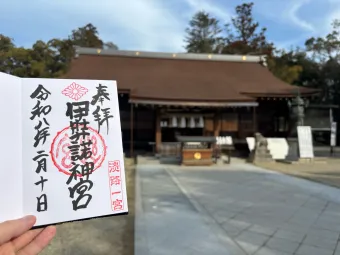 奉拝
伊弉諾神宮
淡路一宮
令和八年二月十日